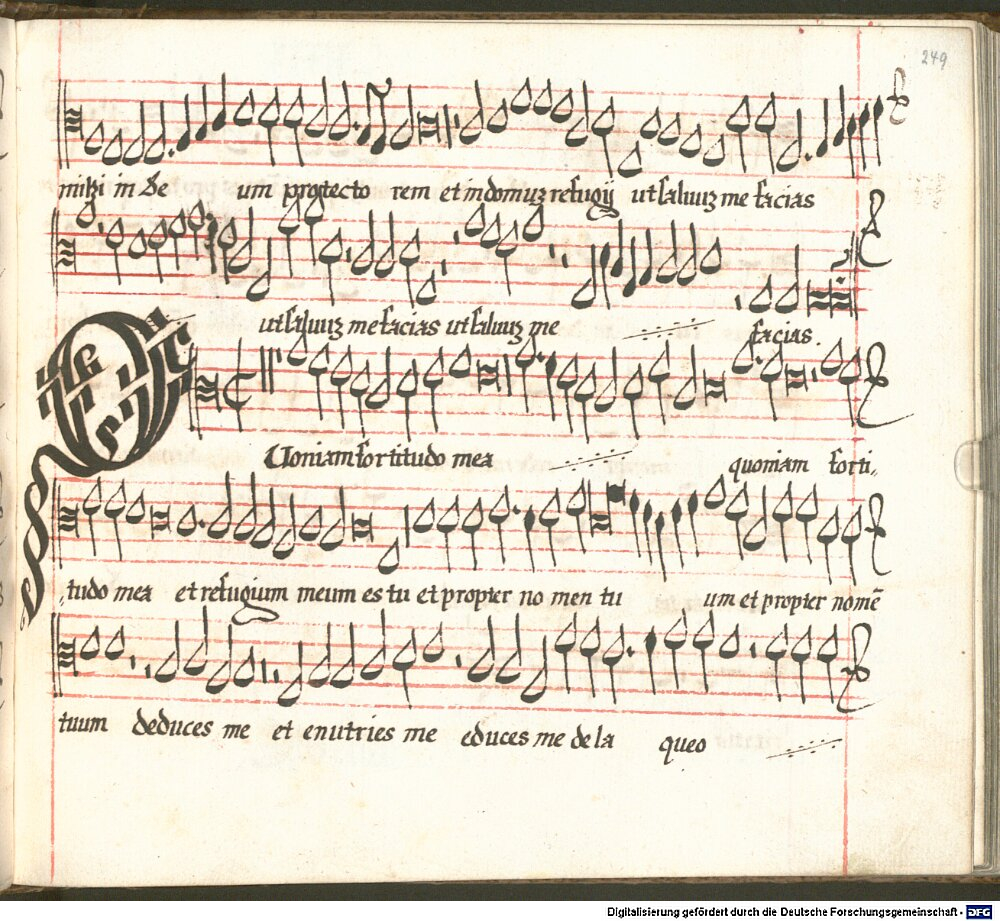 249
mihi in De um protecto rem et in domuʒ refugij ut salvuʒ me facias
ut salvuʒ me facias ut salvuʒ me facias.
Quoniam fortitudo mea quoniam forti„
„tudo mea et refugium meum es tu et propter no men tu um et propter nomē
tuum deduces me et enutries me educes me de la queo
Digitalisierung gefördert durch die Deutsche Forschungsgemeinschaft - DFG